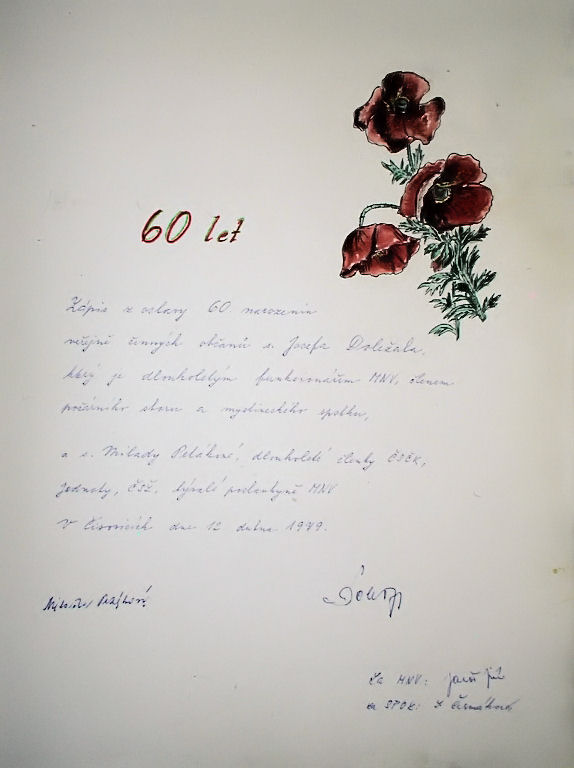 60 let
Zápis z oslavy 60 narozenin
veřejně činných občanů s. Josefa Doležala,
který je dlouholetým funkcionářem MNV, členem
požárního sboru a mysliveckého spolku,
a s. Milady Petákové, dlouholeté členky ČSČK,
Jednoty, ČSŽ, bývalé poslankyně MNV
V dne 12 dubna 1979.
Za MNV:
za SPOZ: